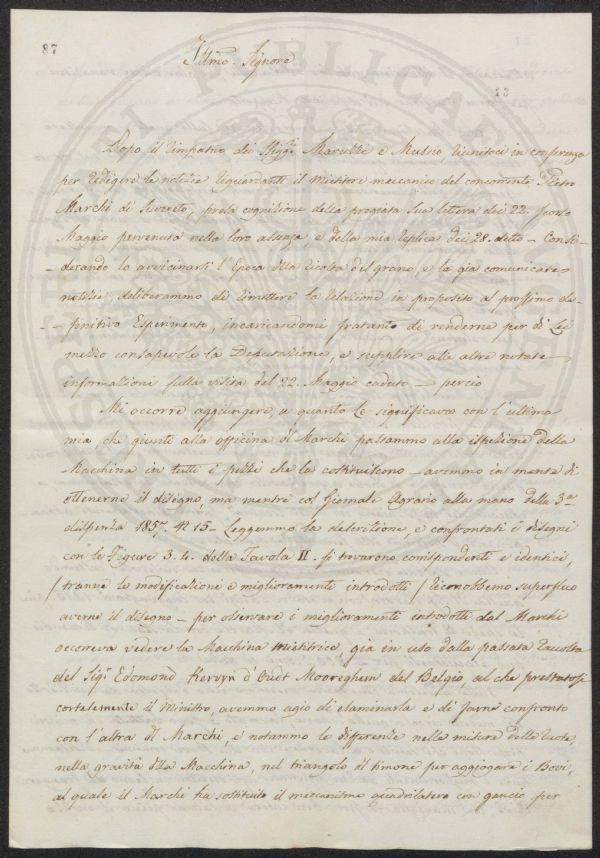 87
Illmo. Signore
13
Dopo il rimpatrio dei Sigg.ri Marcucci e Mussio riunitoci in conferenza
per redigere le notizie riguardanti il mietitore meccanico del concorrente Pietro
Marchi di Suvereto, presa cognizione della pregiata Sua lettera dei 22. scorso
Maggio pervenuta nella loro assenza, e della mia replica dei 28. detto – Consi-
-derando lo avvicinarsi l'Epoca della Ricolta del grano, e le già comunicate
notizie, deliberammo di rimettere la relazione in proposito al prossimo de-
-finitivo Esperimento, incaricandomi frattanto di renderne per di Lei
mezzo consapevole la Deputazione, e supplire alle altre notate
informazioni sulla visita del 22. Maggio caduto – perciò
Mi occorre aggiungere, a quanto Le significavo con l'ultima
mia che giunti alla officina del Marchi passammo alla ispezione della
Macchina in tutti i pezzi che la costituiscono – avemmo in mente di
ottenerne il disegno, ma mentre col Giornale Agrario alla mano della 3.a
dispensa 1857. N 15 – Leggemmo la descrizione, e confrontati i disegni
con le Figure 3. 4. della Tavola II. si trovarono corrispondenti e identici,
/ tranne le modificazione e miglioramenti introdotti / riconobbemo superfluo
averne il disegno – per osservare i miglioramenti introdotti dal Marchi
occorreva vedere la Macchina mietitrice, già in uso dalla passata raccolta
del Sig.r Edomond Kervyn d'Oudt Mooreghem del Belgio, al che prestatosi
cortesemente il Ministro, avemmo agio di esaminarla e di farne confronto
con l'altra di Marchi, e notammo le differenze nelle misure delle ruote,
nella gravità della Macchina, nel triangolo di timone per aggiogare i Bovi,
al quale il Marchi ha sostituito il meccanismo quadrilatero con gancio per